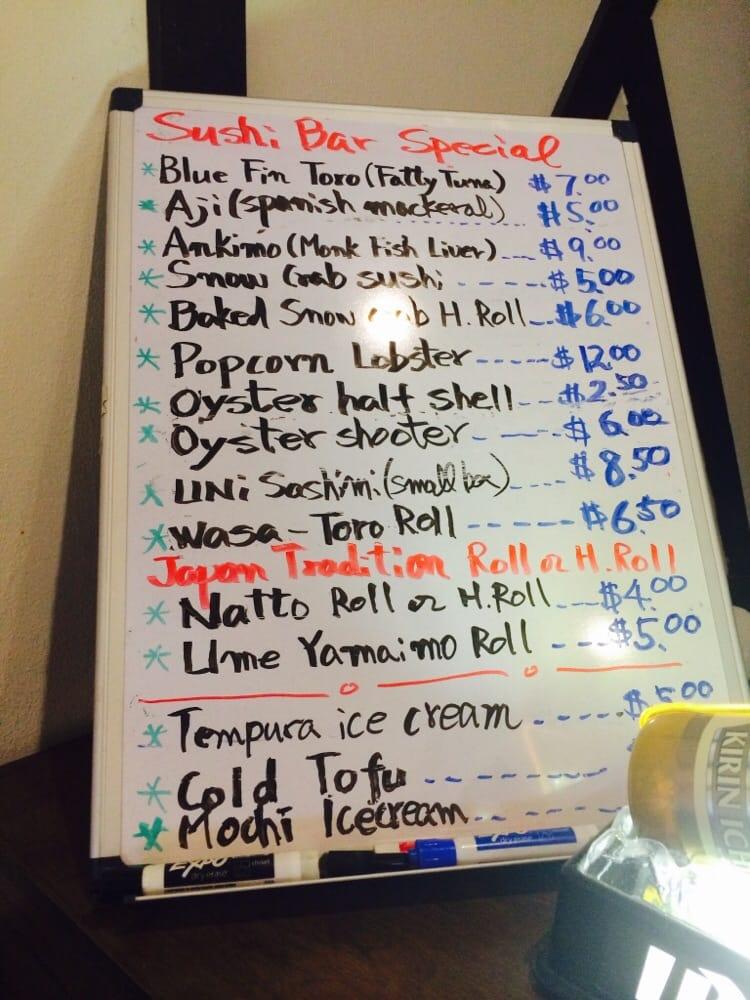 Sushi Bar Special
* Blue Fin Toro (Fatty Tuna) $7.00
* Aji (spanish mackeral) $5.00
* Ankimo (Monk Fish Liver) $9.00
* Snow Crab sushi $5.00
* Baked Snow Crab H. Roll $6.00
* Popcorn Lobster $12.00
* Oyster half shell $2.50
* Oyster shooter $6.00
* UNi Sashimi (small box) $8.50
* Wasa-Toro Roll $6.50
Japan Tradition Roll or H. Roll
* Natto Roll or H. Roll $4.00
* Ume Yamaimo Roll $5.00
* Tempura ice cream $5.00
* Cold Tofu
* Mochi Icecream
EXPO
dry erase
EXPO
KIRIN ICH